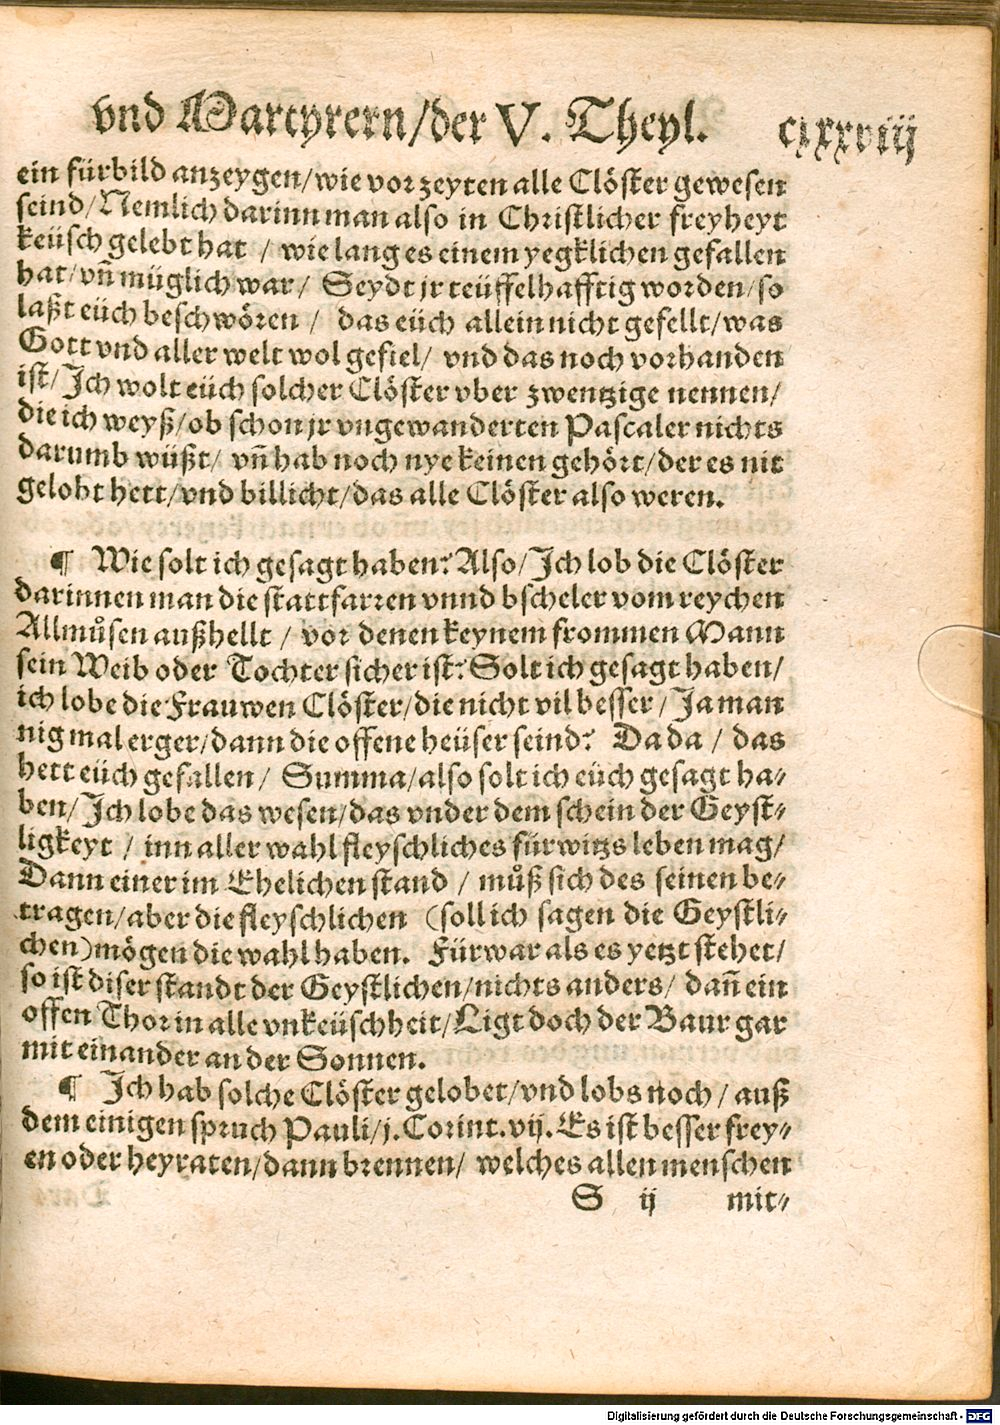 vnd Martyrern/der V. Theyl. clxxviij
ein fürbild anzeygen/wie vor zeyten alle Clöster gewesen
seind/Nemlich darinn man also in Christlicher freyheyt
keüsch gelebt hat / wie lang es einem yegklichen gefallen
hat/vn̄ müglich war/ Seydt jr teüffelhafftig worden/so
laßt eüch beschwören / das eüch allein nicht gefellt/was
Gott vnd aller welt wol gefiel/ vnd das noch vorhanden
ist/Ich wolt eüch solcher Clöster vber zwentzige nennen/
die ich weyß/ob schon jr vngewanderten Pascaler nichts
darumb wüßt/ vn̄ hab noch nye keinen gehört/der es nit
gelobt hett/vnd billicht/das alle Clöster also weren.
¶ Wie solt ich gesagt haben? Also/Ich lob die Clöster
darinnen man die stattfarren vnnd bscheler vom reychen
Allmůsen außhellt / vor denen keynem frommen Mann
sein Weib oder Tochter sicher ist? Solt ich gesagt haben/
ich lobe die Frauwen Clöster/die nicht vil besser / Ja man
nig mal erger/dann die offene heüser seind? Da da / das
hett eüch gefallen/ Summa/also solt ich eüch gesagt ha-
ben/Ich lobe das wesen/das vnder dem schein der Geyst-
ligkeyt / inn aller wahl fleyschliches fürwitzs leben mag/
Dann einer im Ehelichen stand / můß sich des seinen be-
tragen/aber die fleyschlichen (soll ich sagen die Geystli-
chen)mögen die wahl haben. Fürwar als es yetzt stehet/
so ist diser standt der Geystlichen/nichts anders/ dan̄ ein
offen Thor in alle vnkeüschheit/Ligt doch der Baur gar
mit einander an der Sonnen.
¶ Ich hab solche Clöster gelobet/vnd lobs noch / auß
dem einigen spruch Pauli/j. Corint. vij. Es ist besser frey-
en oder heyraten/dann brennen/ welches allen menschen
S ij mit-
Digitalisierung gefördert durch die Deutsche Forschungsgemeinschaft - DFG